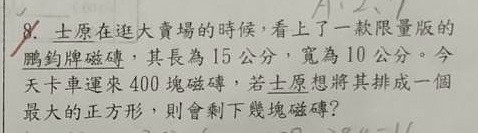 8. 士原在逛大賣場的時候，看上了一款限量版的
鵬鈞牌磁磚，其長為 15 公分，寬為 10 公分。今
天卡車運來 400 塊磁磚，若士原想將其排成一個
最大的正方形，則會剩下幾塊磁磚？